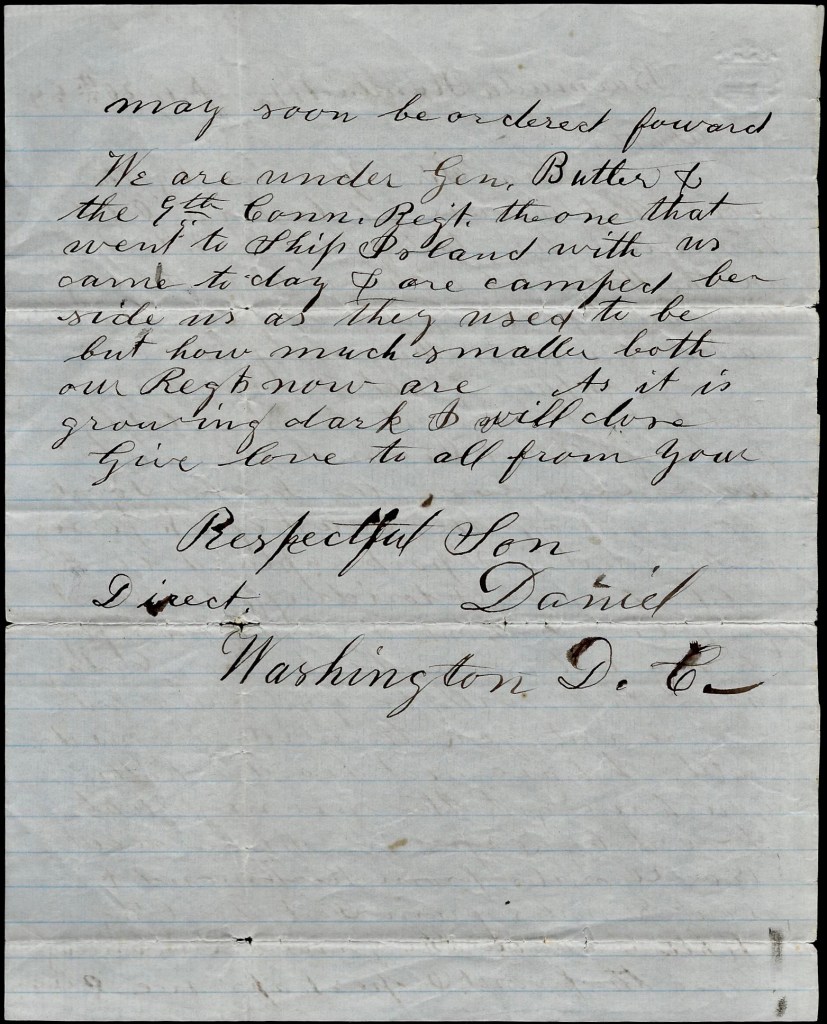 may soon be ordered foward
We are under Gen. Butler &
the 9th Conn. Regt. the one that
went to Ship Island with us
came to day & are camped be-
side us as they used to be
but how much smaller both
our Regts now are As it is
growing dark I will close
Give love to all from your
Respectful Son
Direct. Daniel
Washington D. C.